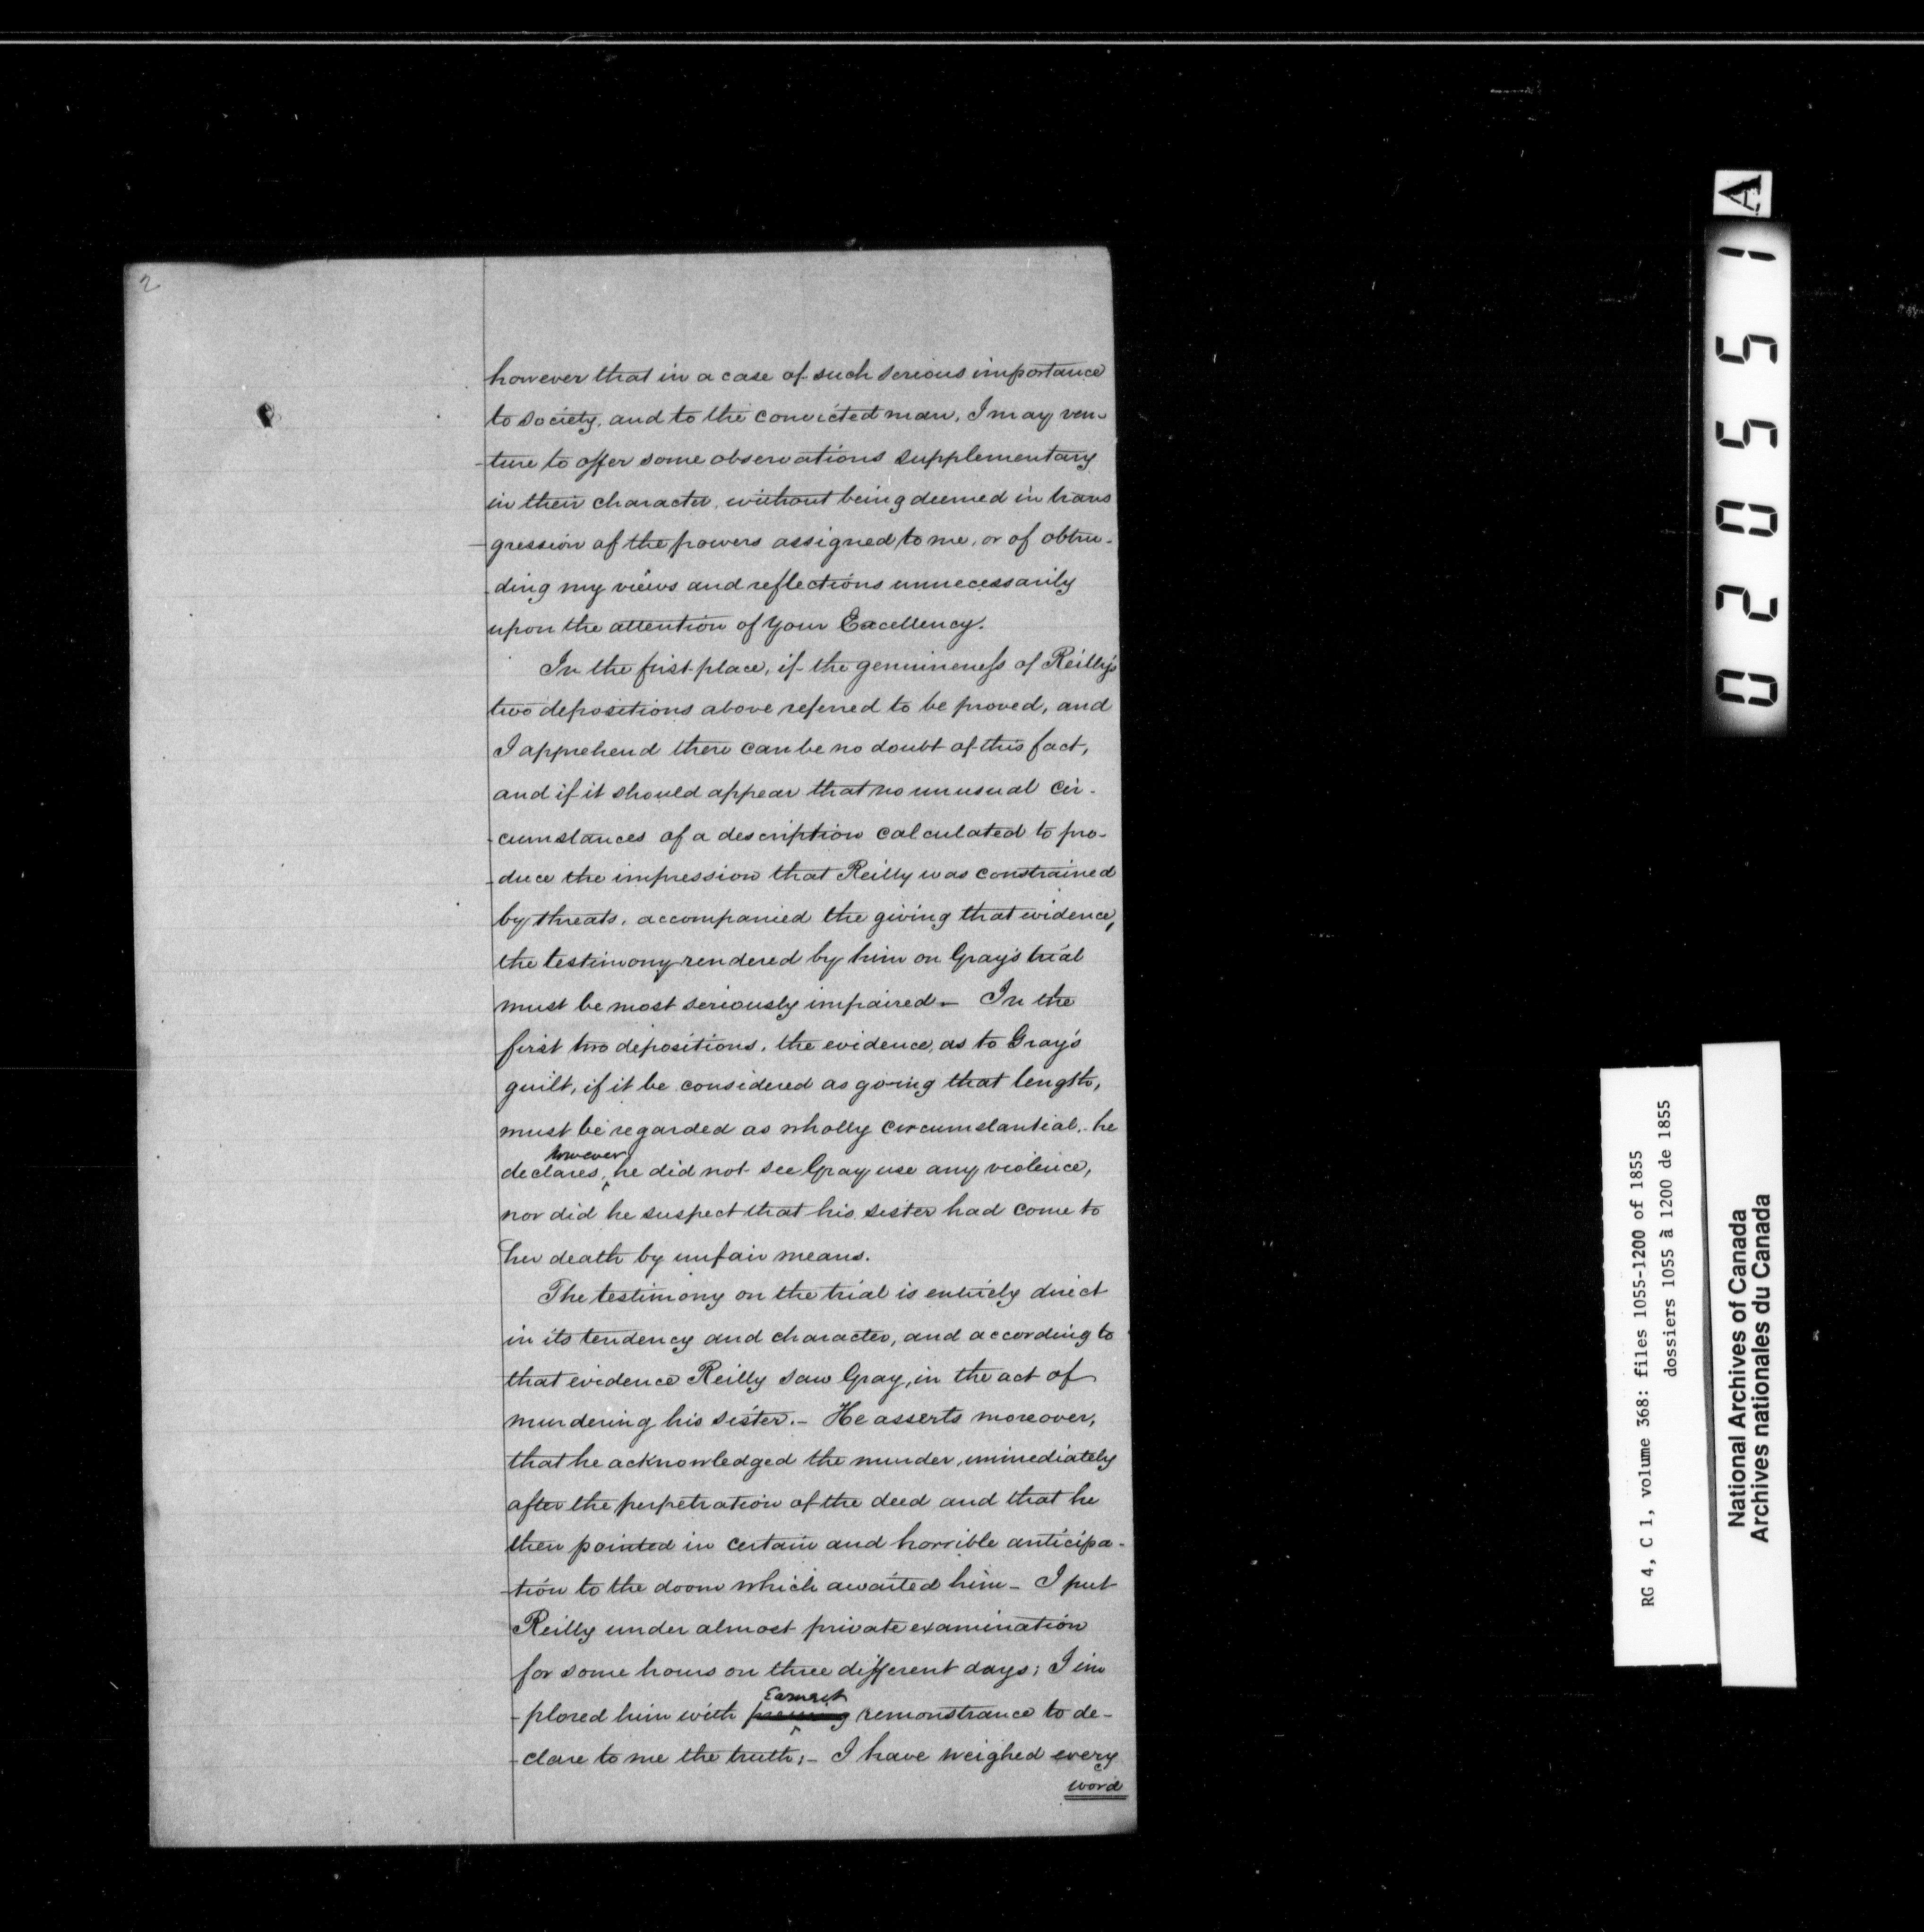 2
however that in a case of such serious importance
to society, and to the convicted man, I may ven-
-ture to offer some observations supplementary
in their character, without being deemed in trans
-gression of the powers assigned to me, or of obtru-
-ding my views and reflections unnecessarily
upon the attention of your Excellency.
In the first place, if the genuineness of Reilly's
two depositions above referred to be proved, and
I apprehend there can be no doubt of this fact,
and if it should appear that no unusual cir-
-cumstances of a description calculated to pro-
-duce the impression that Reilly was constrained
by threats, accompanied the giving that evidence,
the testimony rendered by him on Gray's trial
must be most seriously impaired— In the
first two depositions, the evidence, as to Gray's
guilt, if it be considered as going that length,
must be regarded as wholly circumstantial,- he
however
declares, he did not see Gray use any violence,
nor did he suspect that his sister had come to
her death by unfair means.
The testimony on the trial is entirely direct
in its tendency and character, and according to
that evidence Reilly saw Gray, in the act of
murdering his sister.- He asserts moreover,
that he acknowledged the murder, immediately
after the perpetration of the deed and that he
then pointed in certain and horrible anticipa-
-tion to the doom which awaited him- I put
Reilly under almost private examination
for some hours on three different days; I im
Earnest
-plored him with remonstrance to de-
-clare to me the truth;- I have weighed every
word
A
020551
RG 4, C 1, volume 368: files 1055-1200 of 1855
dossiers 1055 à 1200 de 1855
National Archives of Canada
Archives nationales du Canada